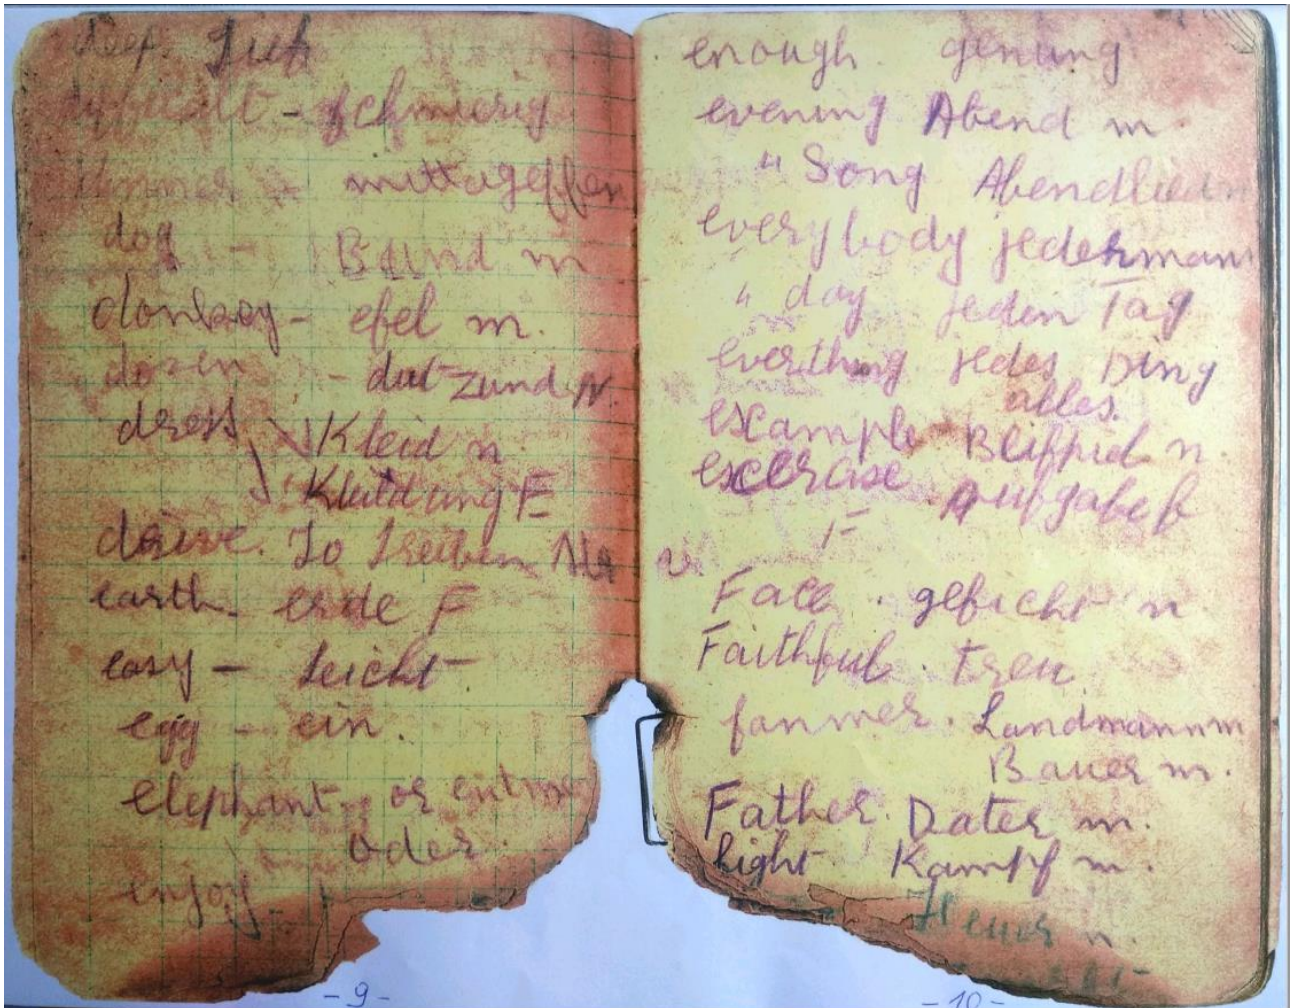 deep. Tief
difficult - schmierig
dinner - mittagessen
dog - Bund m
donkey - esel m.
dozen - dutzund N.
dress Kleid n.
Kleidung F
drive. To Treiben
earth. erde F
easy - leicht
egg - ein.
elephant. or
oder.
enjoy
- 9 -
enough. genung
evening Abend m.
" Song Abendlied
everybody jedermann
" day jeden Tag
everthing jedes Ding
alles.
example Beispiel n.
excercise Aufgabe f
F
Face. gesicht n
Faithful. treu
farmer. Landmann m
Bauer m.
Father. Vater m.
fight Kampf m.
n.
- 10 -